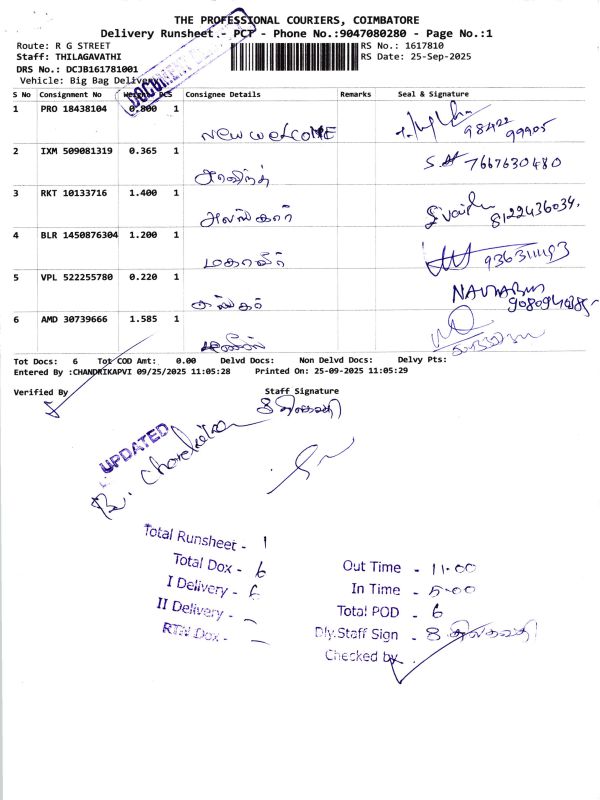 THE PROFESSIONAL COURIERS, COIMBATORE
Delivery Runsheet - PCT - Phone No.:9047080280 - Page No.:1
Route: R G STREET RS No.: 1617810
Staff: THILAGAVATHI RS Date: 25-Sep-2025
DRS No.: DCJB161781001
Vehicle: Big Bag Delivery
S No Consignment No Weight PCS Consignee Details Remarks Seal & Signature
1 PRO 18438104 0.800 1
New welcome 98422 99905
2 IXM 509081319 0.365 1 7667630480
3 RKT 10133716 1.400 1 8122436034.
அலங்கார்
4 BLR 1450876304 1.200 1 9363111193
மகாவீர்
5 VPL 522255780 0.220 1
6 AMD 30739666 1.585 1
Tot Docs: 6 Tot COD Amt: 0.00 Delvd Docs: Non Delvd Docs: Delvy Pts:
Entered By :CHANDRIKAPVI 09/25/2025 11:05:28 Printed On: 25-09-2025 11:05:29
Verified By Staff Signature
UPDATED
Total Runsheet - 1
Total Dox - 6 Out Time - 11-00
I Delivery - 6 In Time - 5-00
II Delivery - Total POD - 6
RTN Dox - Dly.Staff Sign -
Checked by